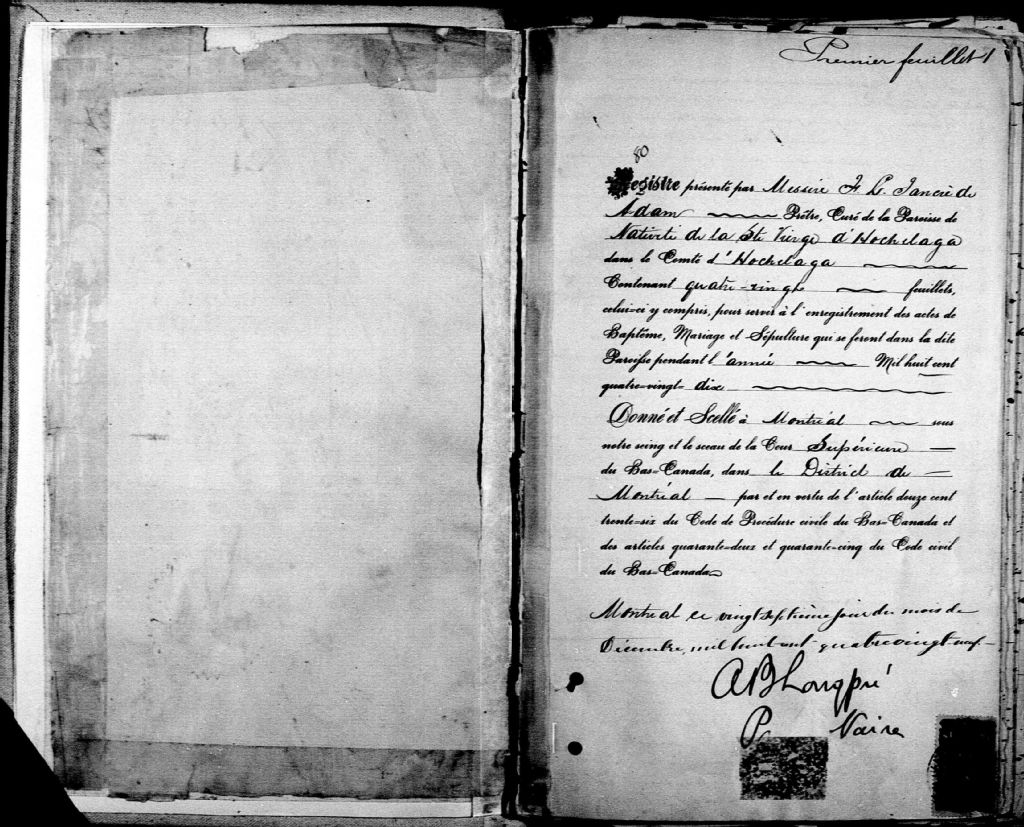 Premier feuillet 1
80
Registre présenté par Messire F. L. Tancrède
Adam Prêtre, Curé de la Paroisse de
Nativité de la Ste Vierge d'Hochelaga
dans le Comté d'Hochelaga
Contenant quatre-vingt feuillets,
celui-ci y compris, pour servir à l'enregistrement des actes de
Baptême, Mariage et Sépulture qui se feront dans la dite
Paroisse pendant l'année Mil huit cent
quatre-vingt-dix
Donné et Scellé à Montréal sous
notre seing et le sceau de la Cour Supérieure
du Bas-Canada, dans le District de
Montréal par et en vertu de l'article douze cent
trente-six du Code de Procédure civile du Bas-Canada et
des articles quarante-deux et quarante-cinq du Code civil
du Bas-Canada
Montréal ce vingt septième jour du mois de
Décembre, mil huit cent quatre vingt neuf
AB Longpré